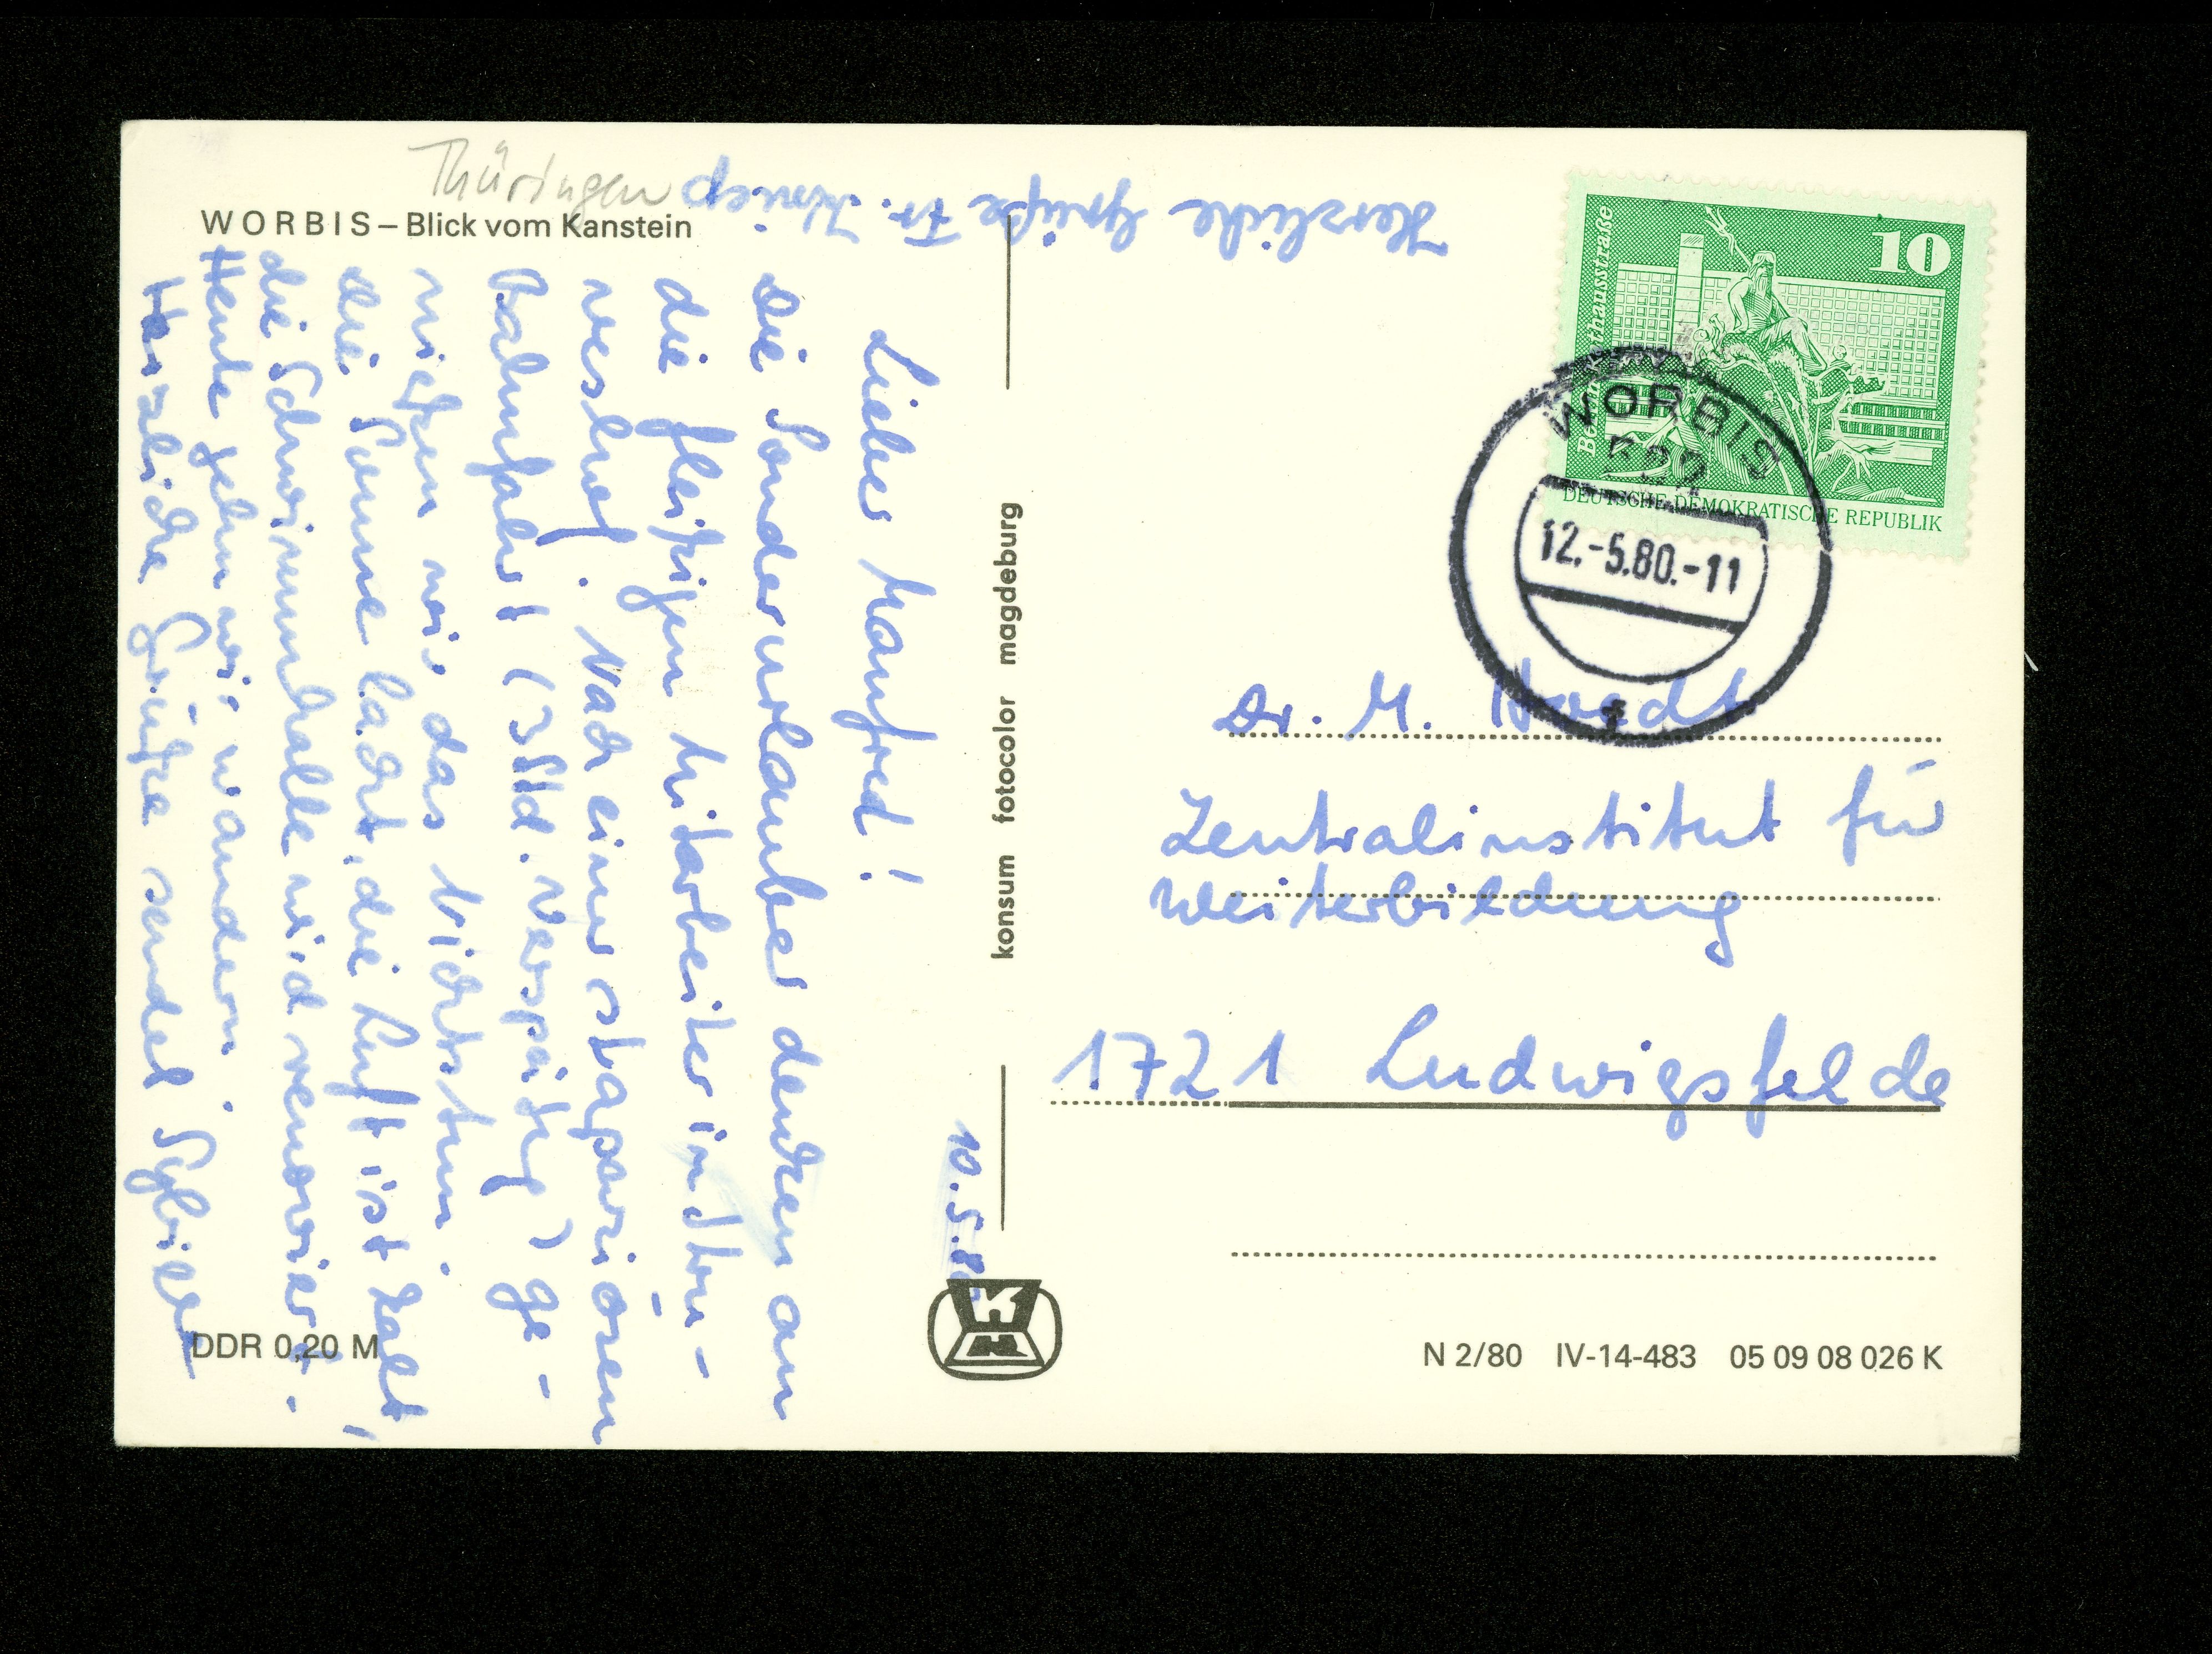 Thüringen
WORBIS – Blick vom Kanstein
10.5.80
Lieber Manfred!
Die Sonderurlauber denken an
die fleißigen Mitarbeiter in Stru-
veshof. Nach einer strapaziösen
Bahnfahrt (3 Std. Verspätg) ge-
nießen wir das Nichtstun.
Die Sonne lacht, die Luft ist kalt,
die Schwimmhalle wird renoviert.
Heute gehn wir wandern.
Herzliche Grüße sendet Sybille
Herzliche Grüße Fr.
konsum fotocolor magdeburg
10
DEUTSCHE DEMOKRATISCHE REPUBLIK
WORBIS
12.-5.80.-11
Dr. M.
Zentralinstitut für
Weiterbildung
1721 Ludwigsfelde
DDR 0,20 M
N 2/80 IV-14-483 05 09 08 026 K